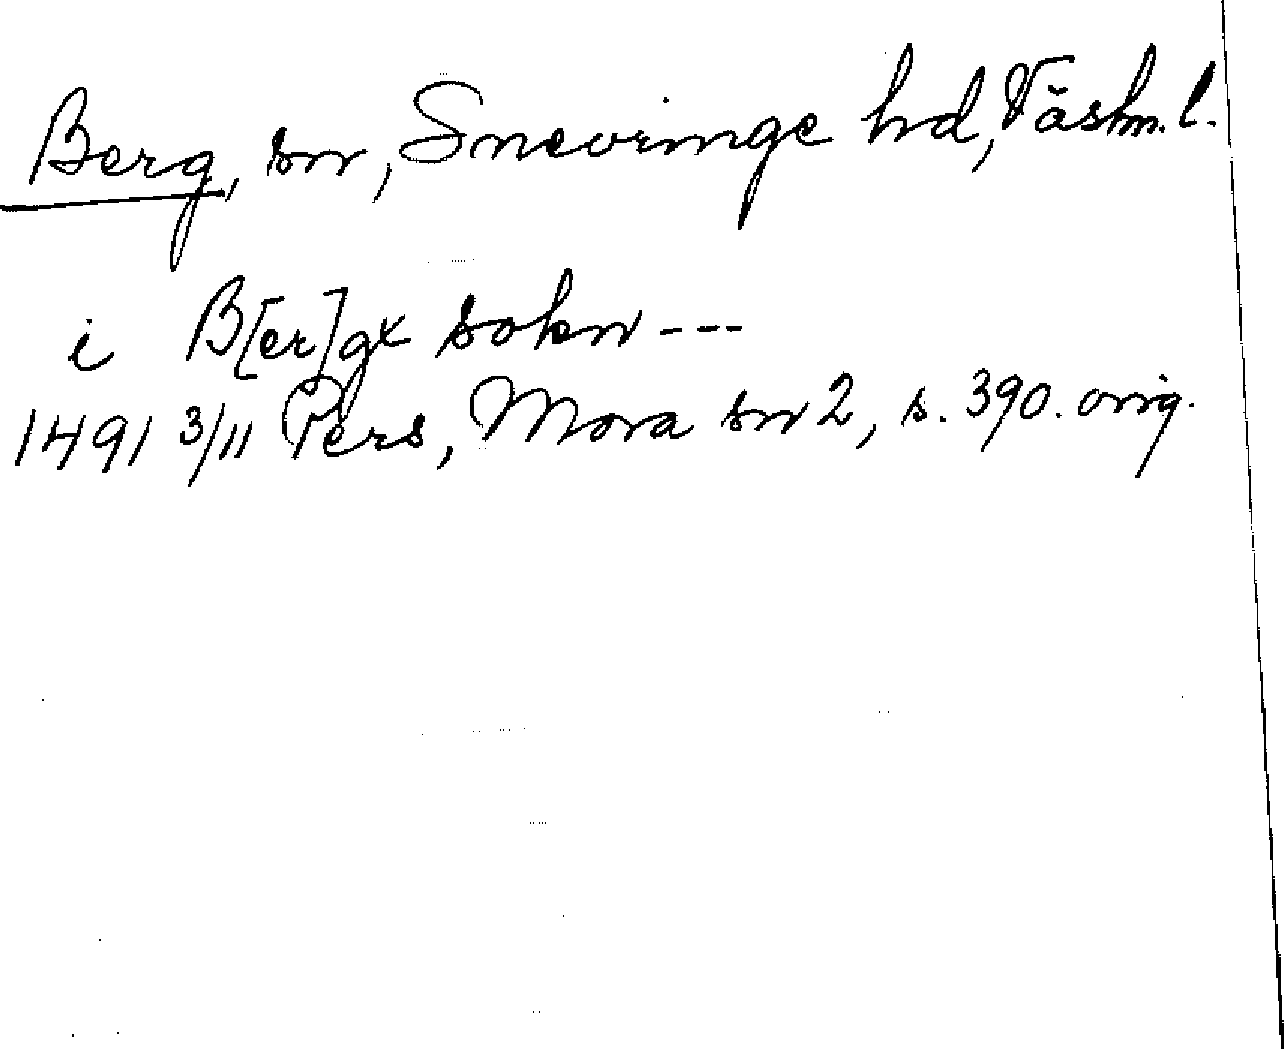 Berg, sn, Snevringe hd, Västm. l.
i B[er]gx sokn ---
1491 3/11 Pers, Mora sn 2, s. 390. orig.